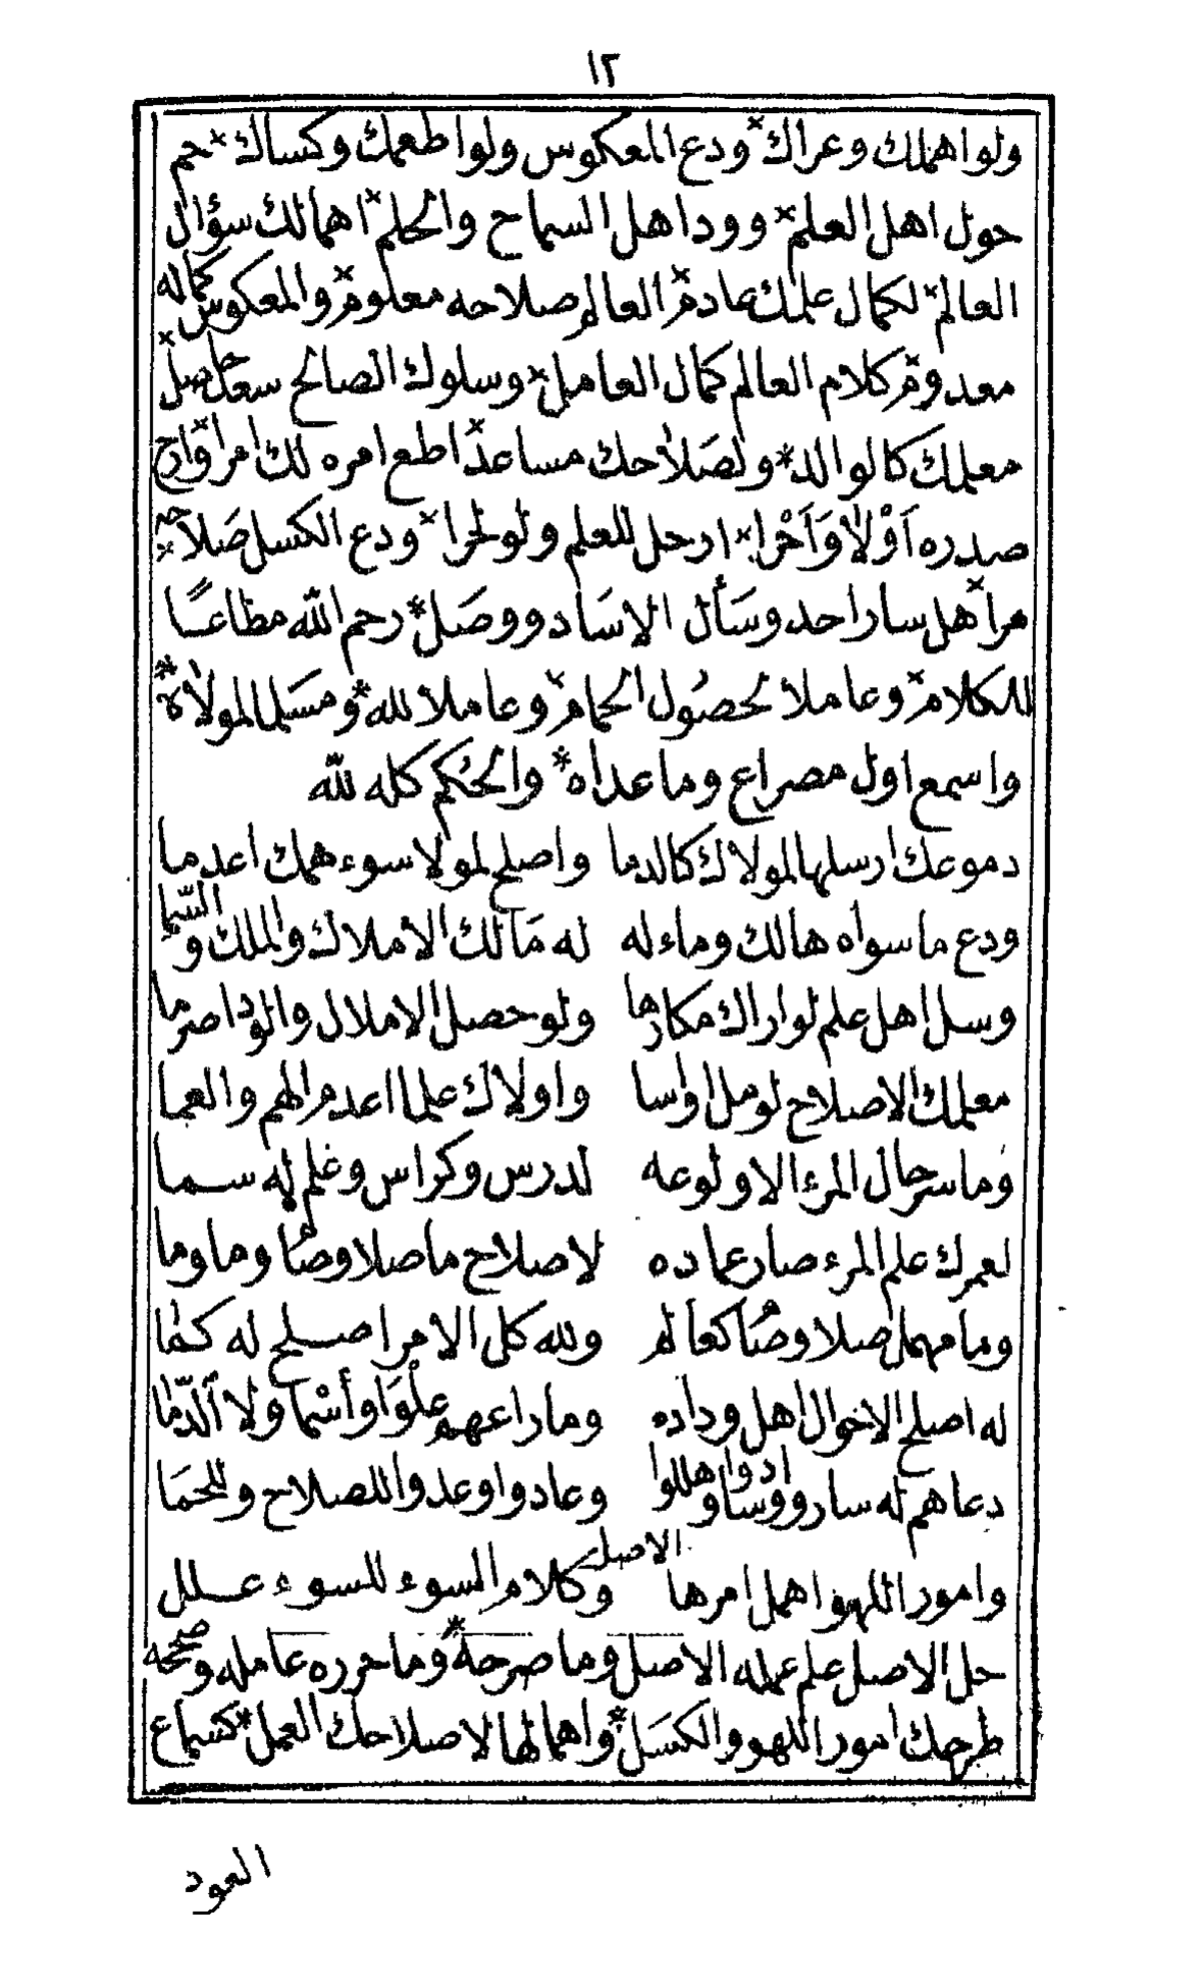 ١٢
ولو اهملك وعراك * ودع المعكوس ولو اطعمك وكساك * حم
حول اهل العلم * وود اهل السماح والحلم * اهمالك سؤال
العالم * لكمال علمك عادم * العالم صلاحه معلوم * والمعكوس كماله
معدوم * كلام العالم كمال العامل * وسلوك الصالح سعد حاصل *
معلمك كالوالد * ولصلاحك مساعد * اطع امره لك امرا * وارح
صدره أولا وأحرا * ارحل للعلم ولو لحرا * ودع الكسل صلاحه *
مرا * هل ساراحد وسأل الاساد ووصل * رحم الله مطاعا
للكلام * وعاملا لحصول الحمام * وعاملا لله * ومسلما لمولاه *
واسمع اول مصراع وما عداه * والحكم كله لله
دموعك ارسلها لمولاك كالدما واصلح لمولا سوء همك اعدما
ودع ما سواه هالك وماء له له مالك الاملاك والملك والسما
وسل اهل علم لو اراك مكارها ولو حصل الاملال والود اصرما
معلمك الاصلاح لو مل او اسا واولاك علما اعدم الهم والعما
وما سر حال المرء الا ولوعه لدرس وكراس وعلم له سما
لعمرك علم المرء صار عماده لاصلاح ما صلا وصاما وما وما
وما مهمل صلا وصا كعالم ولله كل الامر اصلح له كما
له اصلح الاحوال اهل وداده وما راعهم علوا وأسما ولا الدما
دعاهم له سارو وساد واوهللوا وعادوا وعدوا للصلاح وللحما
الاصل
وامور اللهو اهمل امرها وكلام السوء للسوء علل
حل الاصل علم عمله الاصل وما صرحه * وما حرره عامله وصححه
طرحك امور اللهو والكسل * واهمالها لاصلاحك العمل * كسماع
العود